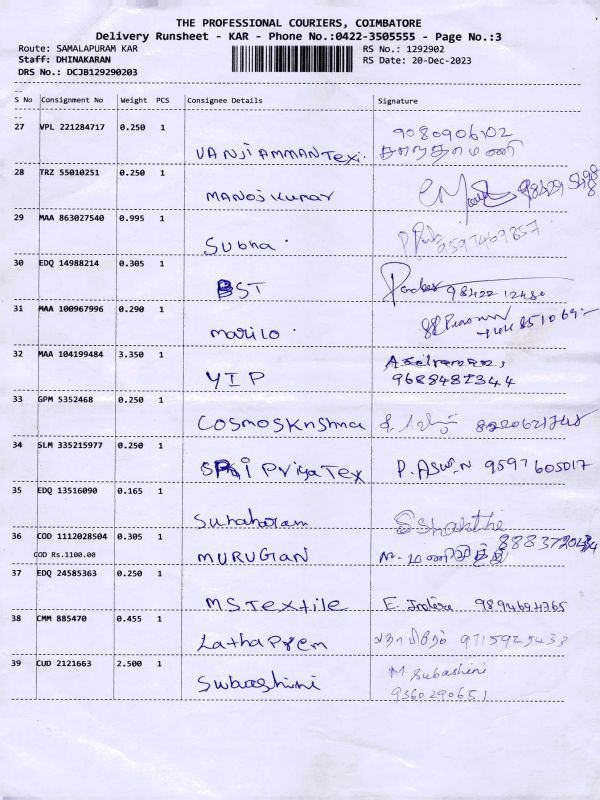 THE PROFESSIONAL COURIERS, COIMBATORE
Delivery Runsheet - KAR - Phone No.:0422-3505555 - Page No.:3
Route: SAMALAPURAM KAR RS No.: 1292902
Staff: DHINAKARAN RS Date: 20-Dec-2023
DRS No.: DCJB129290203
S No Consignment No Weight PCS Consignee Details Signature
27 VPL 221284717 0.250 1
9080906102
VANJIAMMAN Tex.
28 TRZ 55010251 0.250 1
Manoj Kumar
29 MAA 863027540 0.995 1
Subha. 9597469857
30 EDQ 14988214 0.305 1
BST 9842212480
31 MAA 100967996 0.290 1
marilo
32 MAA 104199484 3.350 1
YIP 9688487344
33 GPM 5352468 0.250 1
COSMOSKrishna
34 SLM 335215977 0.250 1
Sri Priya Tex P. ASWIN 9597605017
35 EDQ 13516090 0.165 1
36 COD 1112028504 0.305 1
COD Rs.1100.00 MURUGAN
37 EDQ 24585363 0.250 1
MS Textile
38 CMM 885470 0.455 1
Latha Prem 9715925433
39 CUD 2121663 2.500 1
Subashini M. Subashini
9360290651